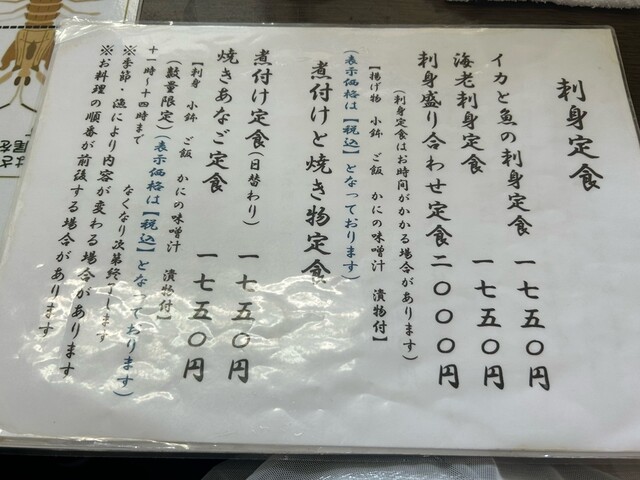 刺身定食
イカと魚の刺身定食 一七五〇円
海老刺身定食 一七五〇円
刺身盛り合わせ定食 二〇〇〇円
(刺身定食はお時間がかかる場合があります)
【揚げ物 小鉢 ご飯 かにの味噌汁 漬物付】
(表示価格は【税込】となっております)
煮付けと焼き物定食
煮付け定食(日替わり) 一七五〇円
焼きあなご定食 一七五〇円
【刺身 小鉢 ご飯 かにの味噌汁 漬物付】
(数量限定)(表示価格は【税込】となっております)
十一時~十四時まで なくなり次第終了します
※季節・漁により内容が変わる場合があります
※お料理の順番が前後する場合があります